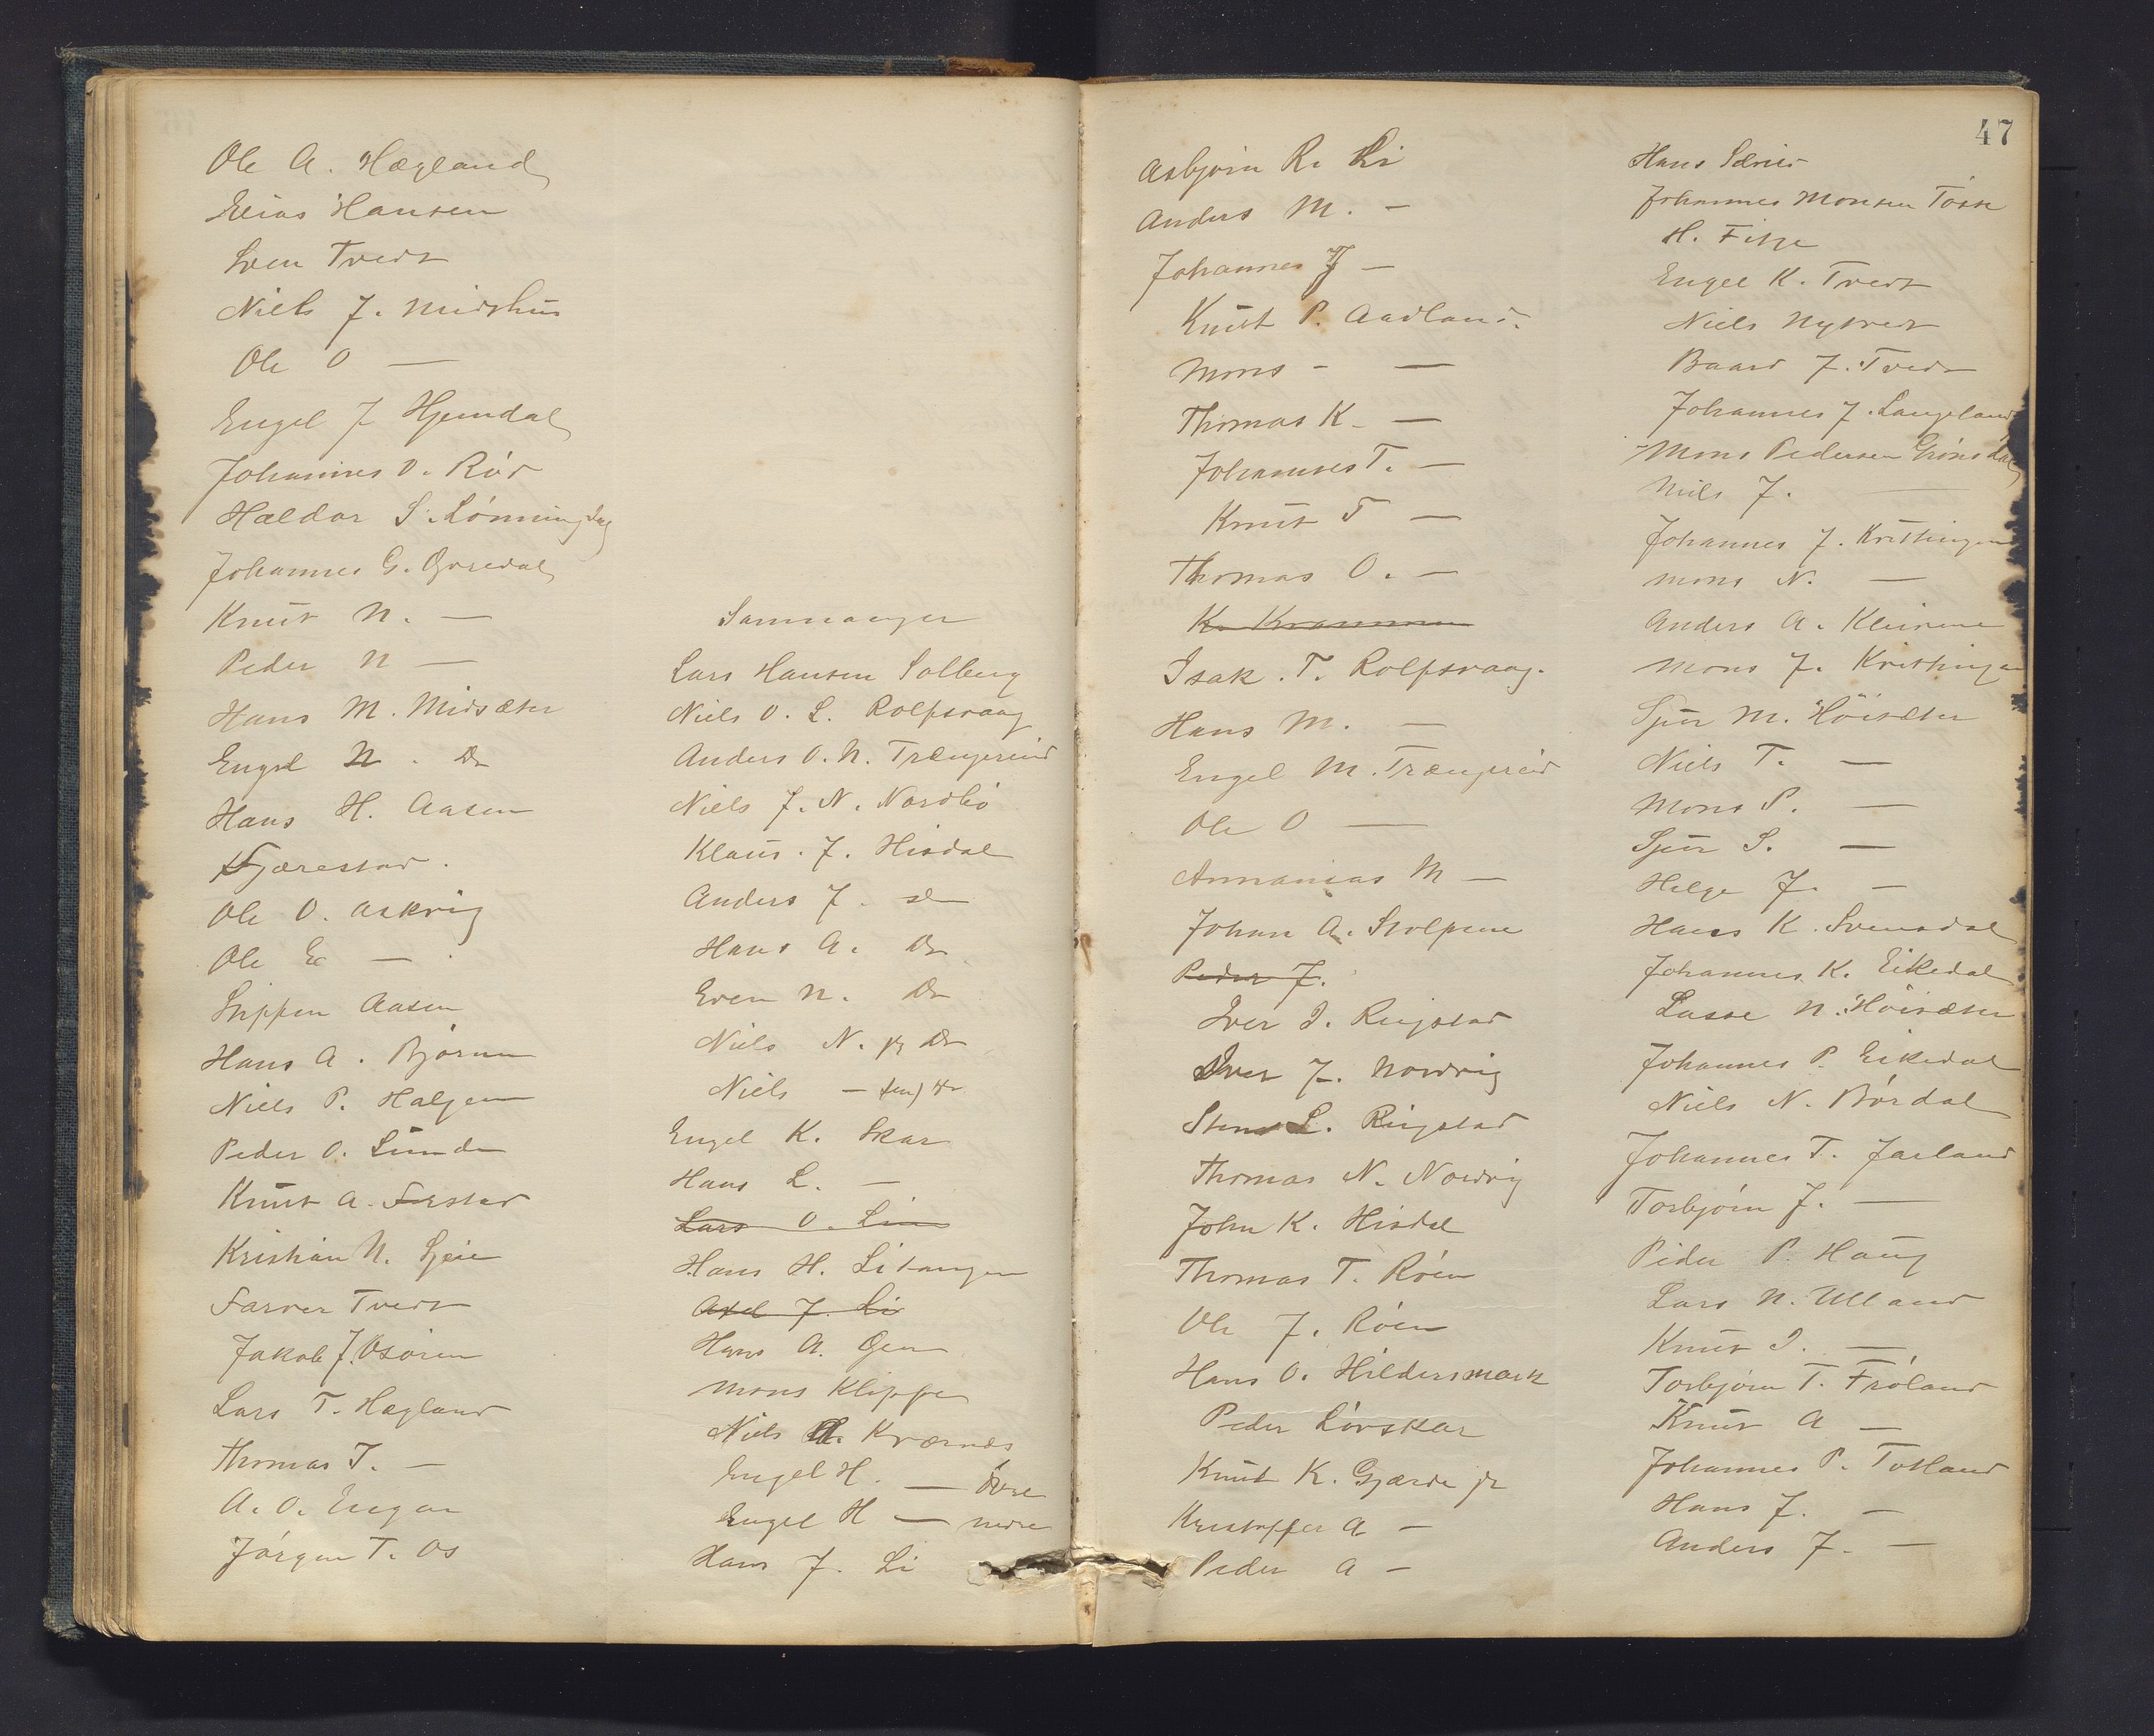 Ole A. Hægland
Elias Hansen
Sven Tvedt
Niels J. Midthus
Ole O —
Engel J Hjemdal
Johannes O. Röd
Haldor S. Lönningdag
Johannes G. Övredal
Knut N. —
Peder N —
Hans M. Midsæter
Engel N. Do
Hans H. Aasen
Fjærestad.
Ole O. Askvig
Ole E —
Steffen Aasen
Hans A. Björnen
Niels P. Halgen
Peder O. Lunde
Knut A. Forstad
Kristian N. Gjeie
Farver Tvedt
Jakob J. Osören
Lars T. Hægland
Thomas T. —
A. O. Engen
Jörgen T. Os
Samnanger
Lars Hansen Solberg
Niels O. L. Rolfsvaag
Anders O. N. Trængereid
Niels J. N. Nordbö
Klaus. J. Hisdal
Anders J. do
Hans A. Do
Even N. Do
Niels N. jr Do
Niels — sen) Do
Engel K. Skar
Hans L. —
Lars O. Lien
Hans H. Litangen
Axel J. Li
Hans A. Öen
Mons Klippen
Niels A. Kvernes
Engel H. — övre
Engel H — nedre
Hans J. Li
47
Asbjörn R. Li
Anders M. —
Johannes J —
Knut P. Aadland.
Mons - —
Thomas K. —
Johannes T. —
Knut T —
Thomas O. —
K. Krammen
Isak. T. Rolfsvaag.
Hans M. —
Engel M. Trængereid
Ole O —
Annanias M —
Johan A. Stolpene
Peder J.
Iver I. Ringstad
Iver J. Nordvig
Sten L. Ringstad
Thomas N. Nordvig
John K. Hisdal
Thomas T. Röen
Ole J. Röen
Hans O. Hildersmark
Peder Lövskar
Knut K. Gjærde jr
Kristoffer A —
Peder A —
Hans
Johannes Monsen Tösse
H. Fitje
Engel K. Tvedt
Niels Nytvedt
Baard J. Tvedt
Johannes J. Langeland
Mons Pedersen Grönsdal
Nils J. —
Johannes J. Kristhingen
Mons N. —
Anders A. Kleivene
Mons J. Kristhingen
Sjur M. Höisæter
Niels T. —
Mons S. —
Sjur S. —
Helge J. —
Hans K. Svensdal
Johannes K. Eikedal
Lasse N. Höisæter
Johannes P. Eikedal
Niels N. Bördal
Johannes T. Jarland
Torbjörn J. —
Peder P. Haug
Lars N. Ulland
Knut I. —
Torbjörn T. Fröland
Knut A —
Johannes P. Totland
Hans J. —
Anders J. —